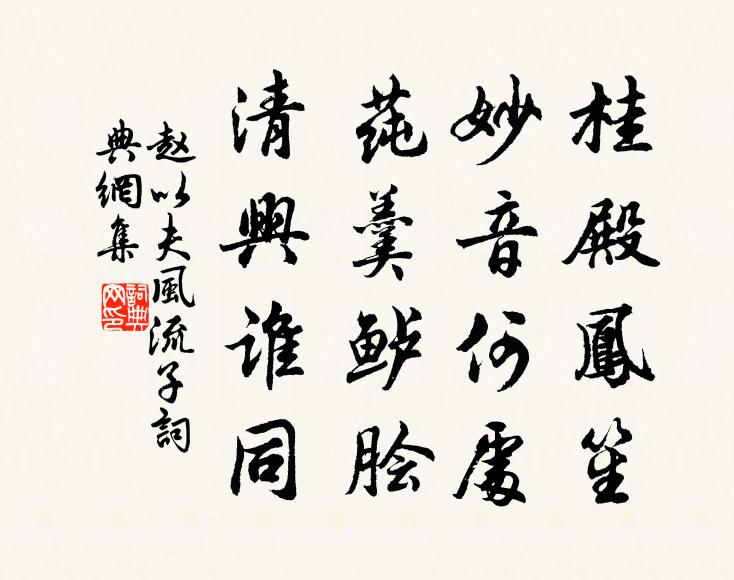 桂殿鳳笙
妙音何處
莼羹鲈脍
清興誰同
赵以夫風流子詞
典網集
詞典網印